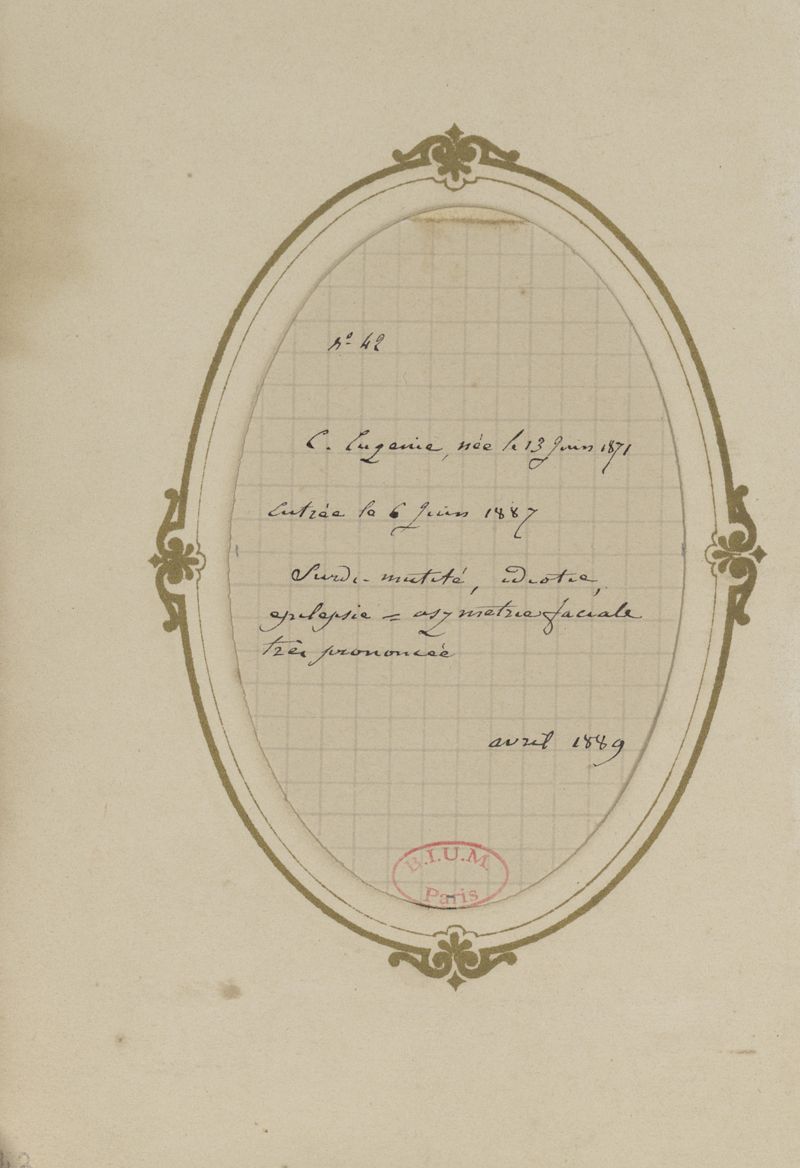 No 42
C. Eugenie, née le 13 Juin 1871
Entrée le 6 Juin 1887
Surdi-mutité, idiotie,
epilepsie = asymétrie faciale
très prononcée
avril 1889
B.I.U.M.
Paris